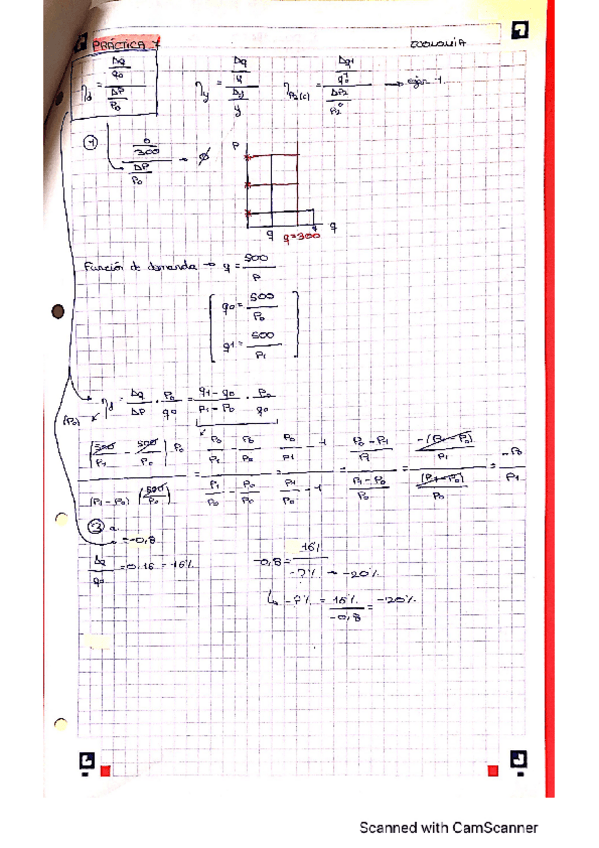 PRÁCTICA 7
ECONOMÍA
ηd = Δq/q0 / ΔP/P0    ηy = Δq/q / Δy/y    ηP2(c) = Δq1/q1 / ΔP2/P2 → ejer 1.
① 0/300 / ΔP/P0 → ∅
P
q q=300 q
Función de demanda → y = 500/P
[ q0 = 500/P0
q1 = 500/P1 ]
ηd = Δq/ΔP · P0/q0 = q1 - q0/P1 - P0 · P0/q0
(P0)
(500/P1 - 500/P0) P0 / (P1 - P0) (500/P0) = P0/P1 - P0/P0 / P1/P0 - P0/P0 = P0/P1 - 1 / P1/P0 - 1 = P0 - P1/P1 / P1 - P0/P0 = -(P1 - P0)/P1 / (P1 - P0)/P0 = -P0/P1
③ a.
= -0,8
Δq/q0 = 0,16 = 16%
-0,8 = 16%/-?% → -20%
↳ -?% = 16%/-0,8 = -20%
Scanned with CamScanner